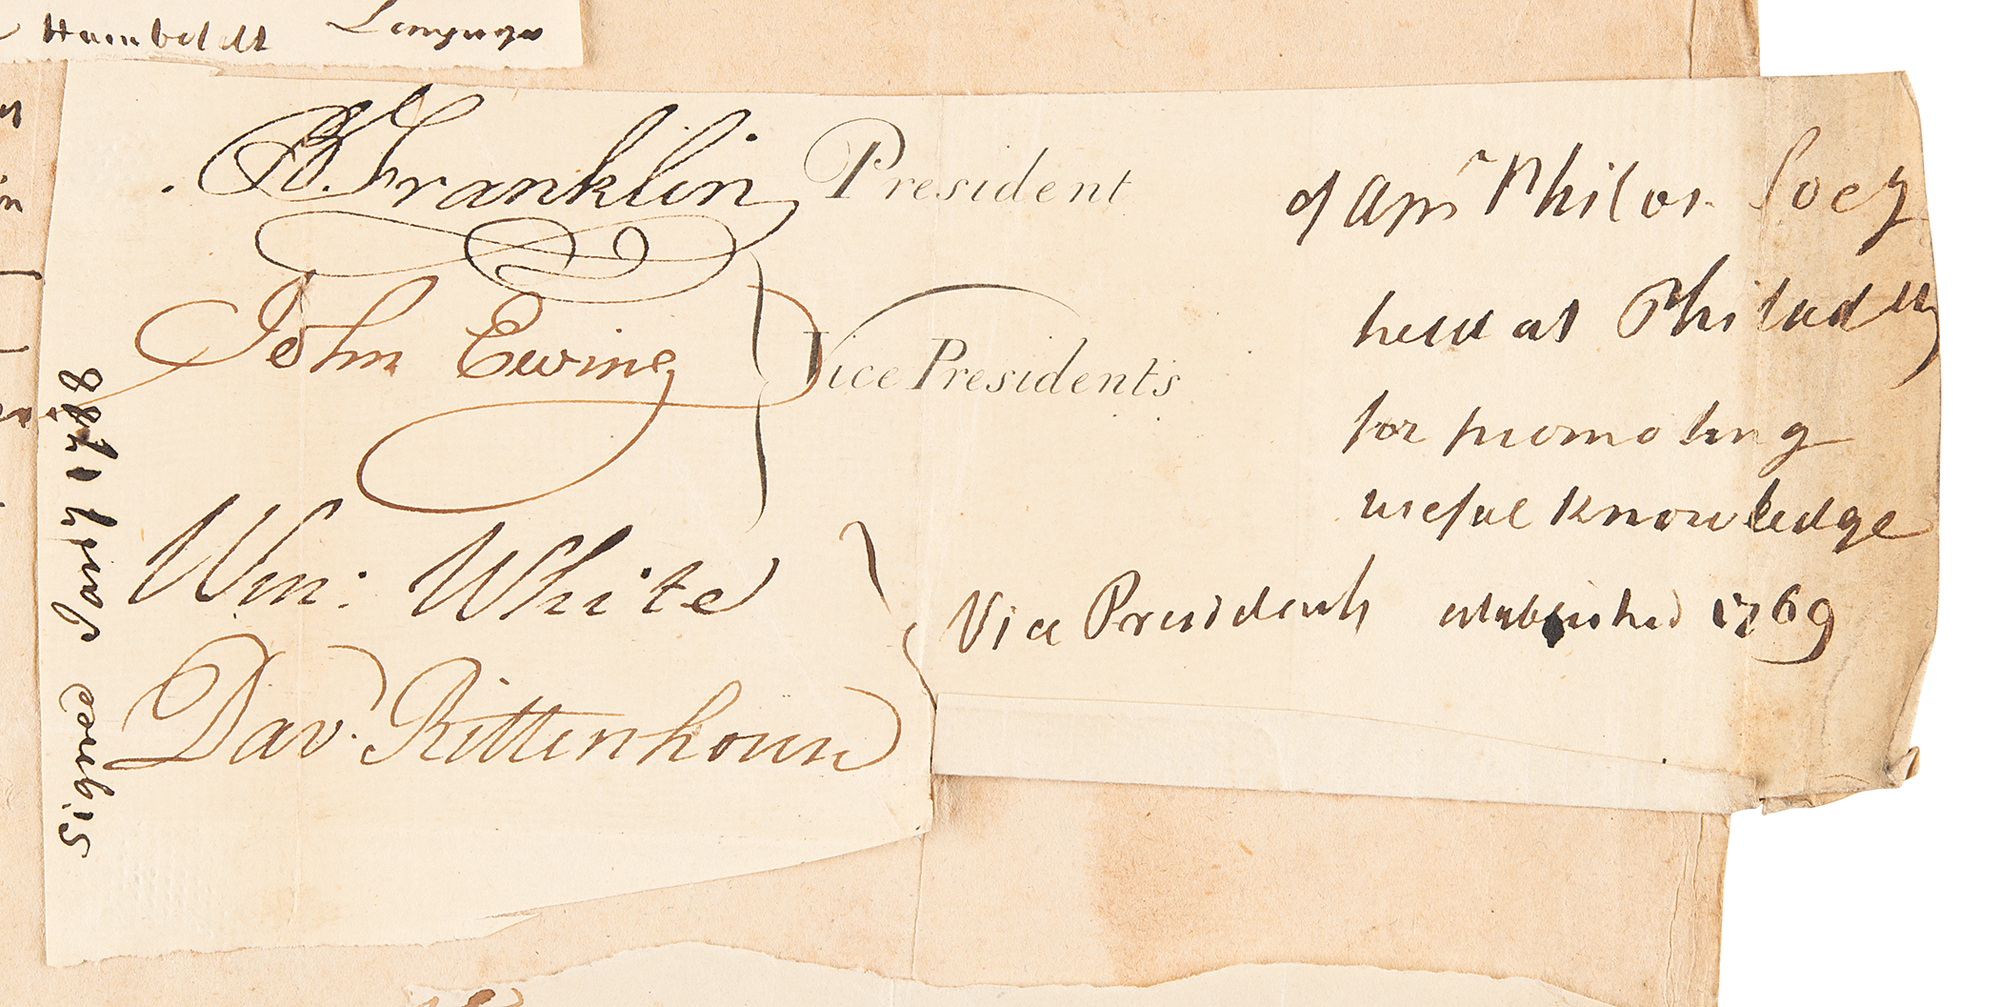 Humboldt Language
B. Franklin, President of Amr Philos. Socy
held at Philad
John Ewing Vice Presidents
for promoting
useful knowledge
Wm: White
Vice Presidents established 1769
Dav. Rittenhouse
signed July 1788